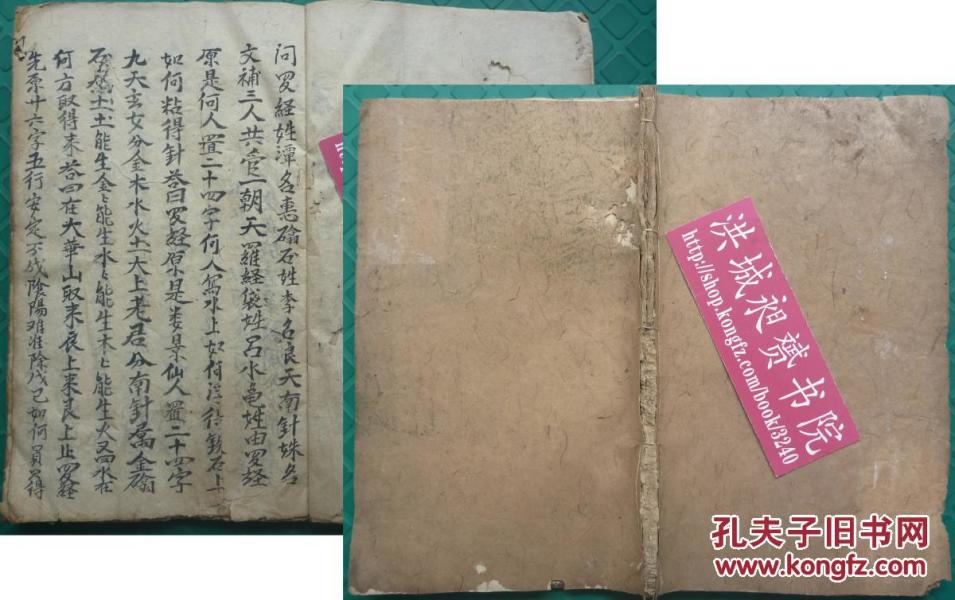 问罗经姓潭名惠磘石姓李名良天南針姝名
文補三人共管一朝天羅経袋姓吕水亀姓由罗経
原是何人置二十四字何人寫水上如何浮得鉄石上
如何粘得針荅曰罗経原是娄景仙人置二十四字
九天玄女分金木水火土大上老君分南針属金磘
石属土土能生金金能生水水能生木木能生火又曰水在
何方取得来荅曰在大華山取来良上来良上止罗経
先原廿六字五行安定不成陰陽难准除戊己如何員得
洪城昶赟书院
http://shop.kongfz.com/book/3240
孔夫子旧书网
www.kongfz.com